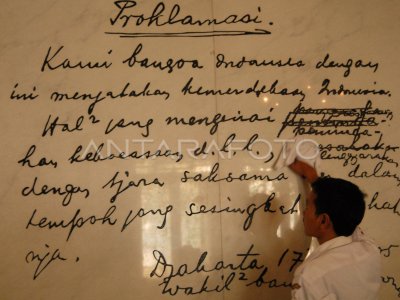 Proklamasi.
Kami bangsa Indonesia dengan
ini menjatakan kemerdekaan Indonesia.
Hal² jang mengenai
peminda-
han kekoeasaan d.l.l.,
dengan tjara saksama dalam
tempoh jang sesingkat
nja.
Djakarta 17
Wakil² ban
ANTARAFOTO